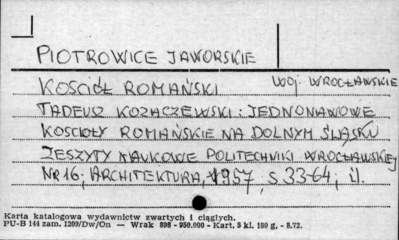 PIOTROWICE JAWORSKIE
KOŚCIÓŁ ROMAŃSKI woj. WROCŁAWSKIE
TADEUSZ KOZACZEWSKI: JEDNONAWOWE
KOŚCIOŁY ROMAŃSKIE NA DOLNYM ŚLĄSKU
ZESZYTY NAUKOWE POLITECHNIKI WROCŁAWSKIEJ
NR 16, ARCHITEKTURA, 1957, s 33-64, il.
Karta katalogowa wydawnictw zwartych i ciągłych.
PU-B 144 zam. 1209/Dw/On — Wrak 898 - 950.000 - Kart. 5 kl. 180 g, - 8.72.